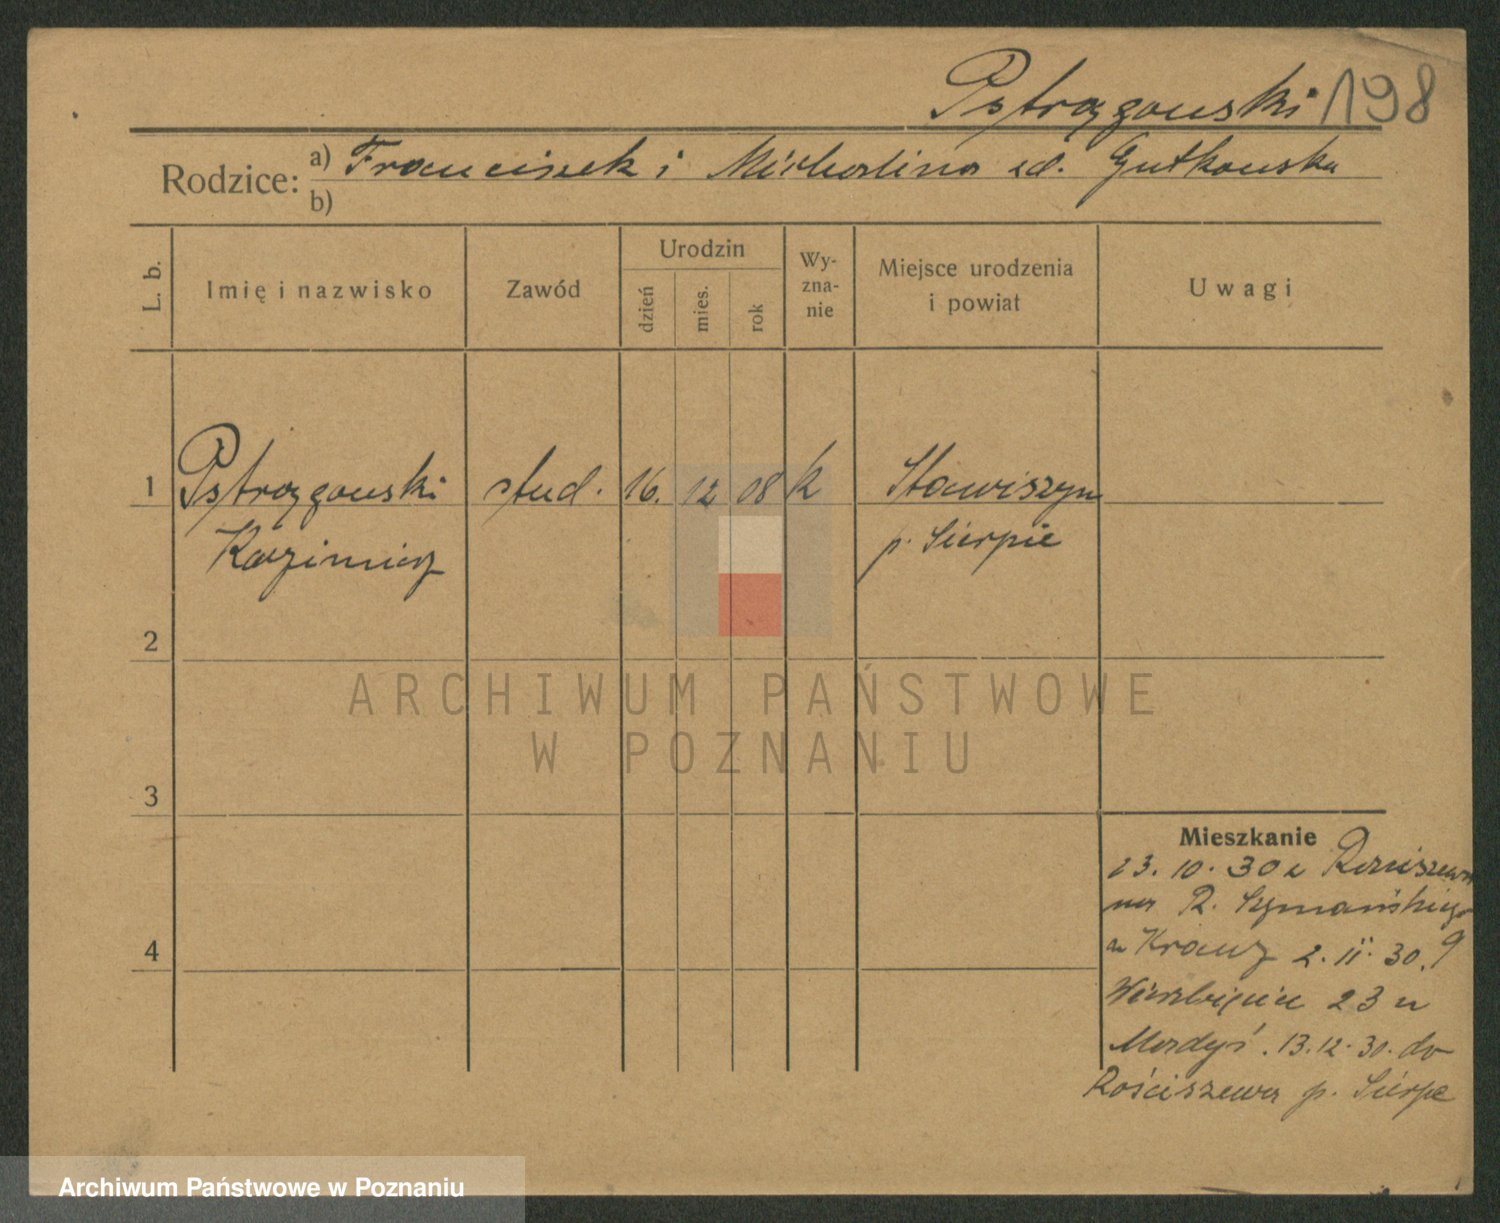 Pstrągowski 198
Rodzice: a) Franciszek i Michalina zd. Gutkowska
b)
L. b. Imię i nazwisko Zawód Urodzin dzień mies. rok Wy-zna-nie Miejsce urodzenia i powiat Uwagi
1 Pstrągowski stud. 16. 12 08 k Stawiszyn
Kazimierz p. Sierpc
2
ARCHIWUM PAŃSTWOWE
W POZNANIU
3
4
Mieszkanie
23. 10. 30 z
na R. Szymańskiego 9
u Krauz 2. 11. 30.
Wierzbięcice 23 u
13.12.30. do
Rościszewa p. Sierpc
Archiwum Państwowe w Poznaniu